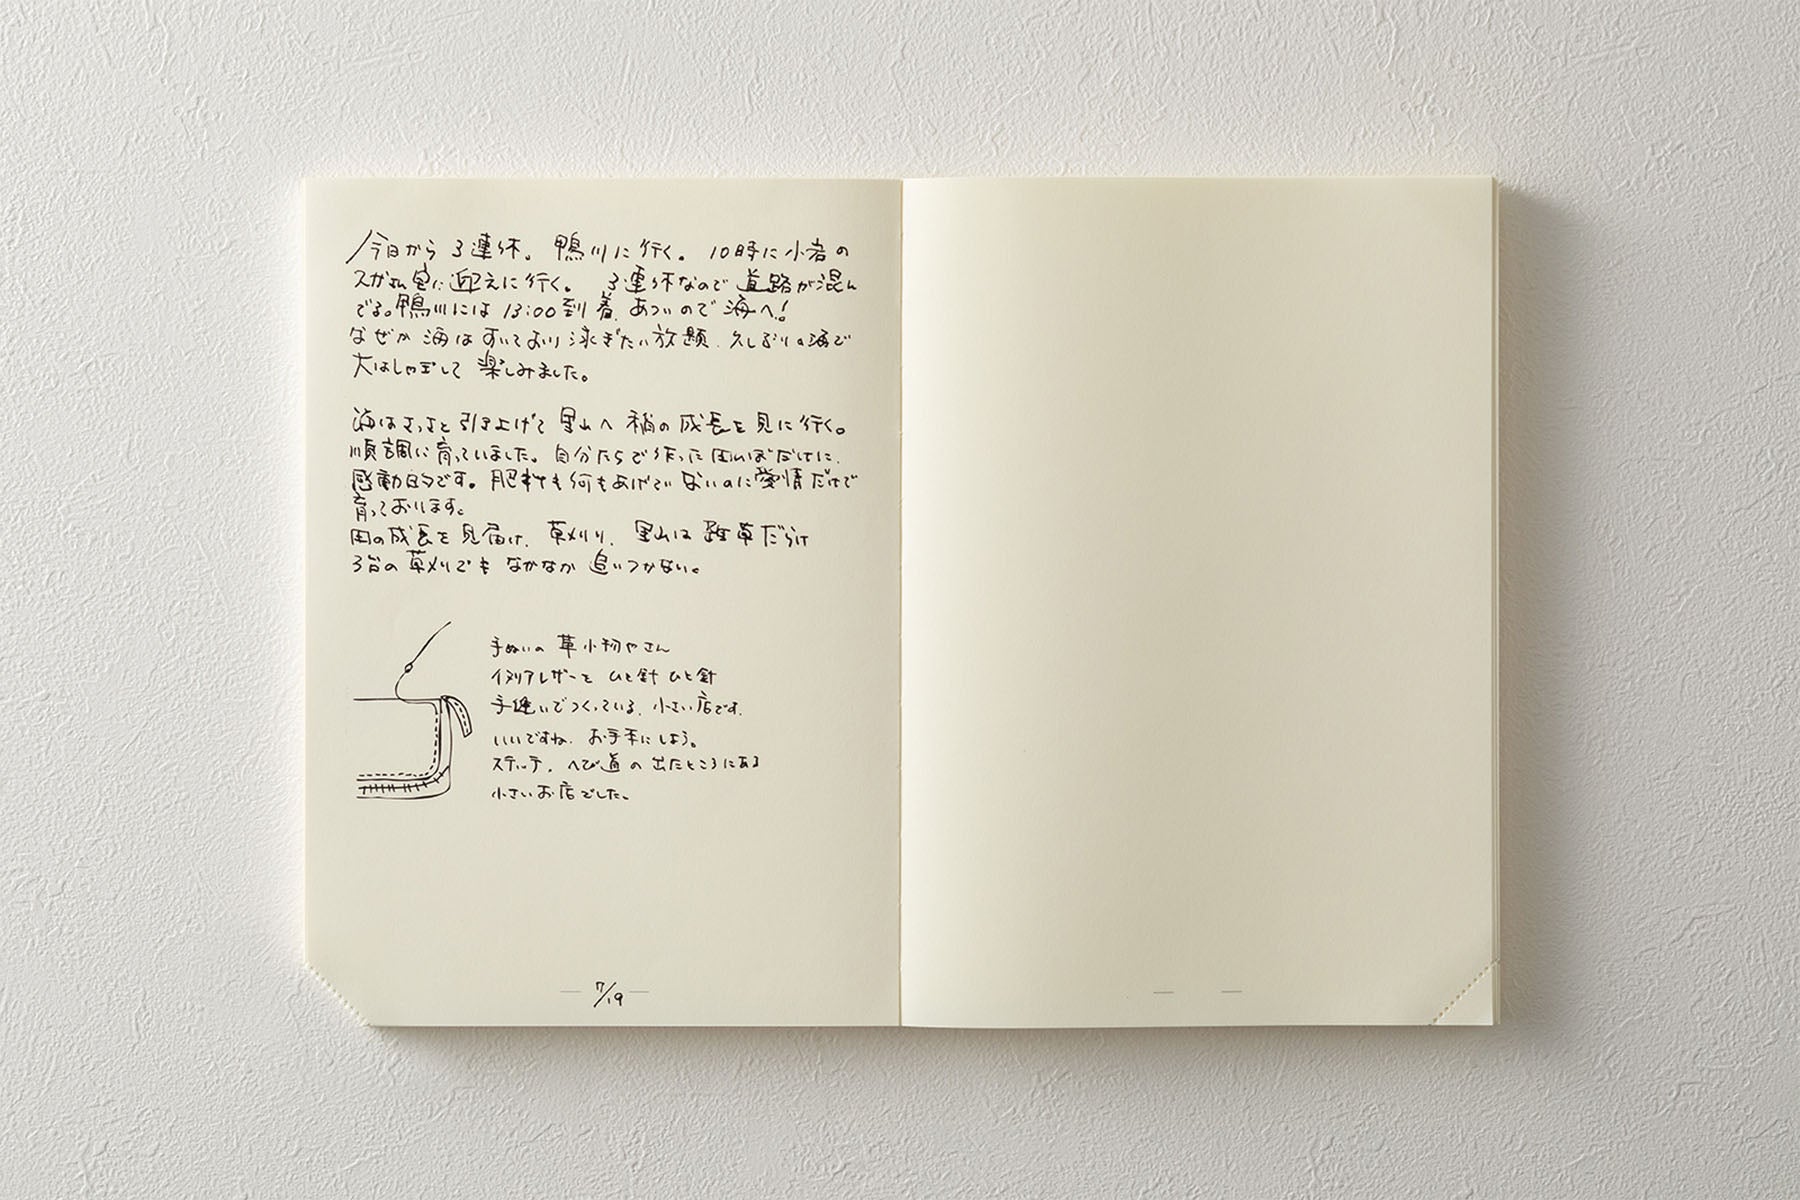 今日から 3連休。 鴨川に行く。 10時に小岩の
スガさん宅に迎えに行く。 3連休なので道路が混ん
でる。鴨川には 13:00到着、あついので海へ!
なぜか 海は すいており 泳ぎたい放題、久しぶりの海で
大はしゃぎして 楽しみました。
海はさっさと引き上げて 里山へ 稲の成長を見に行く。
順調に育っていました。自分たちで作った田んぼだけに、
感動的です。肥料も何もあげていないのに愛情だけで
育っております。
田の成長を見届け、草刈り、里山は 雑草だらけ
3台の草刈りでも なかなか 追いつかない。
手ぬいの 革小物やさん
イタリアレザーを ひと針 ひと針
手縫いでつくっている、小さい店です。
いいですね、お手本にしよう。
ステッチ、へび道の 出たところにある
小さいお店でした。
7/19